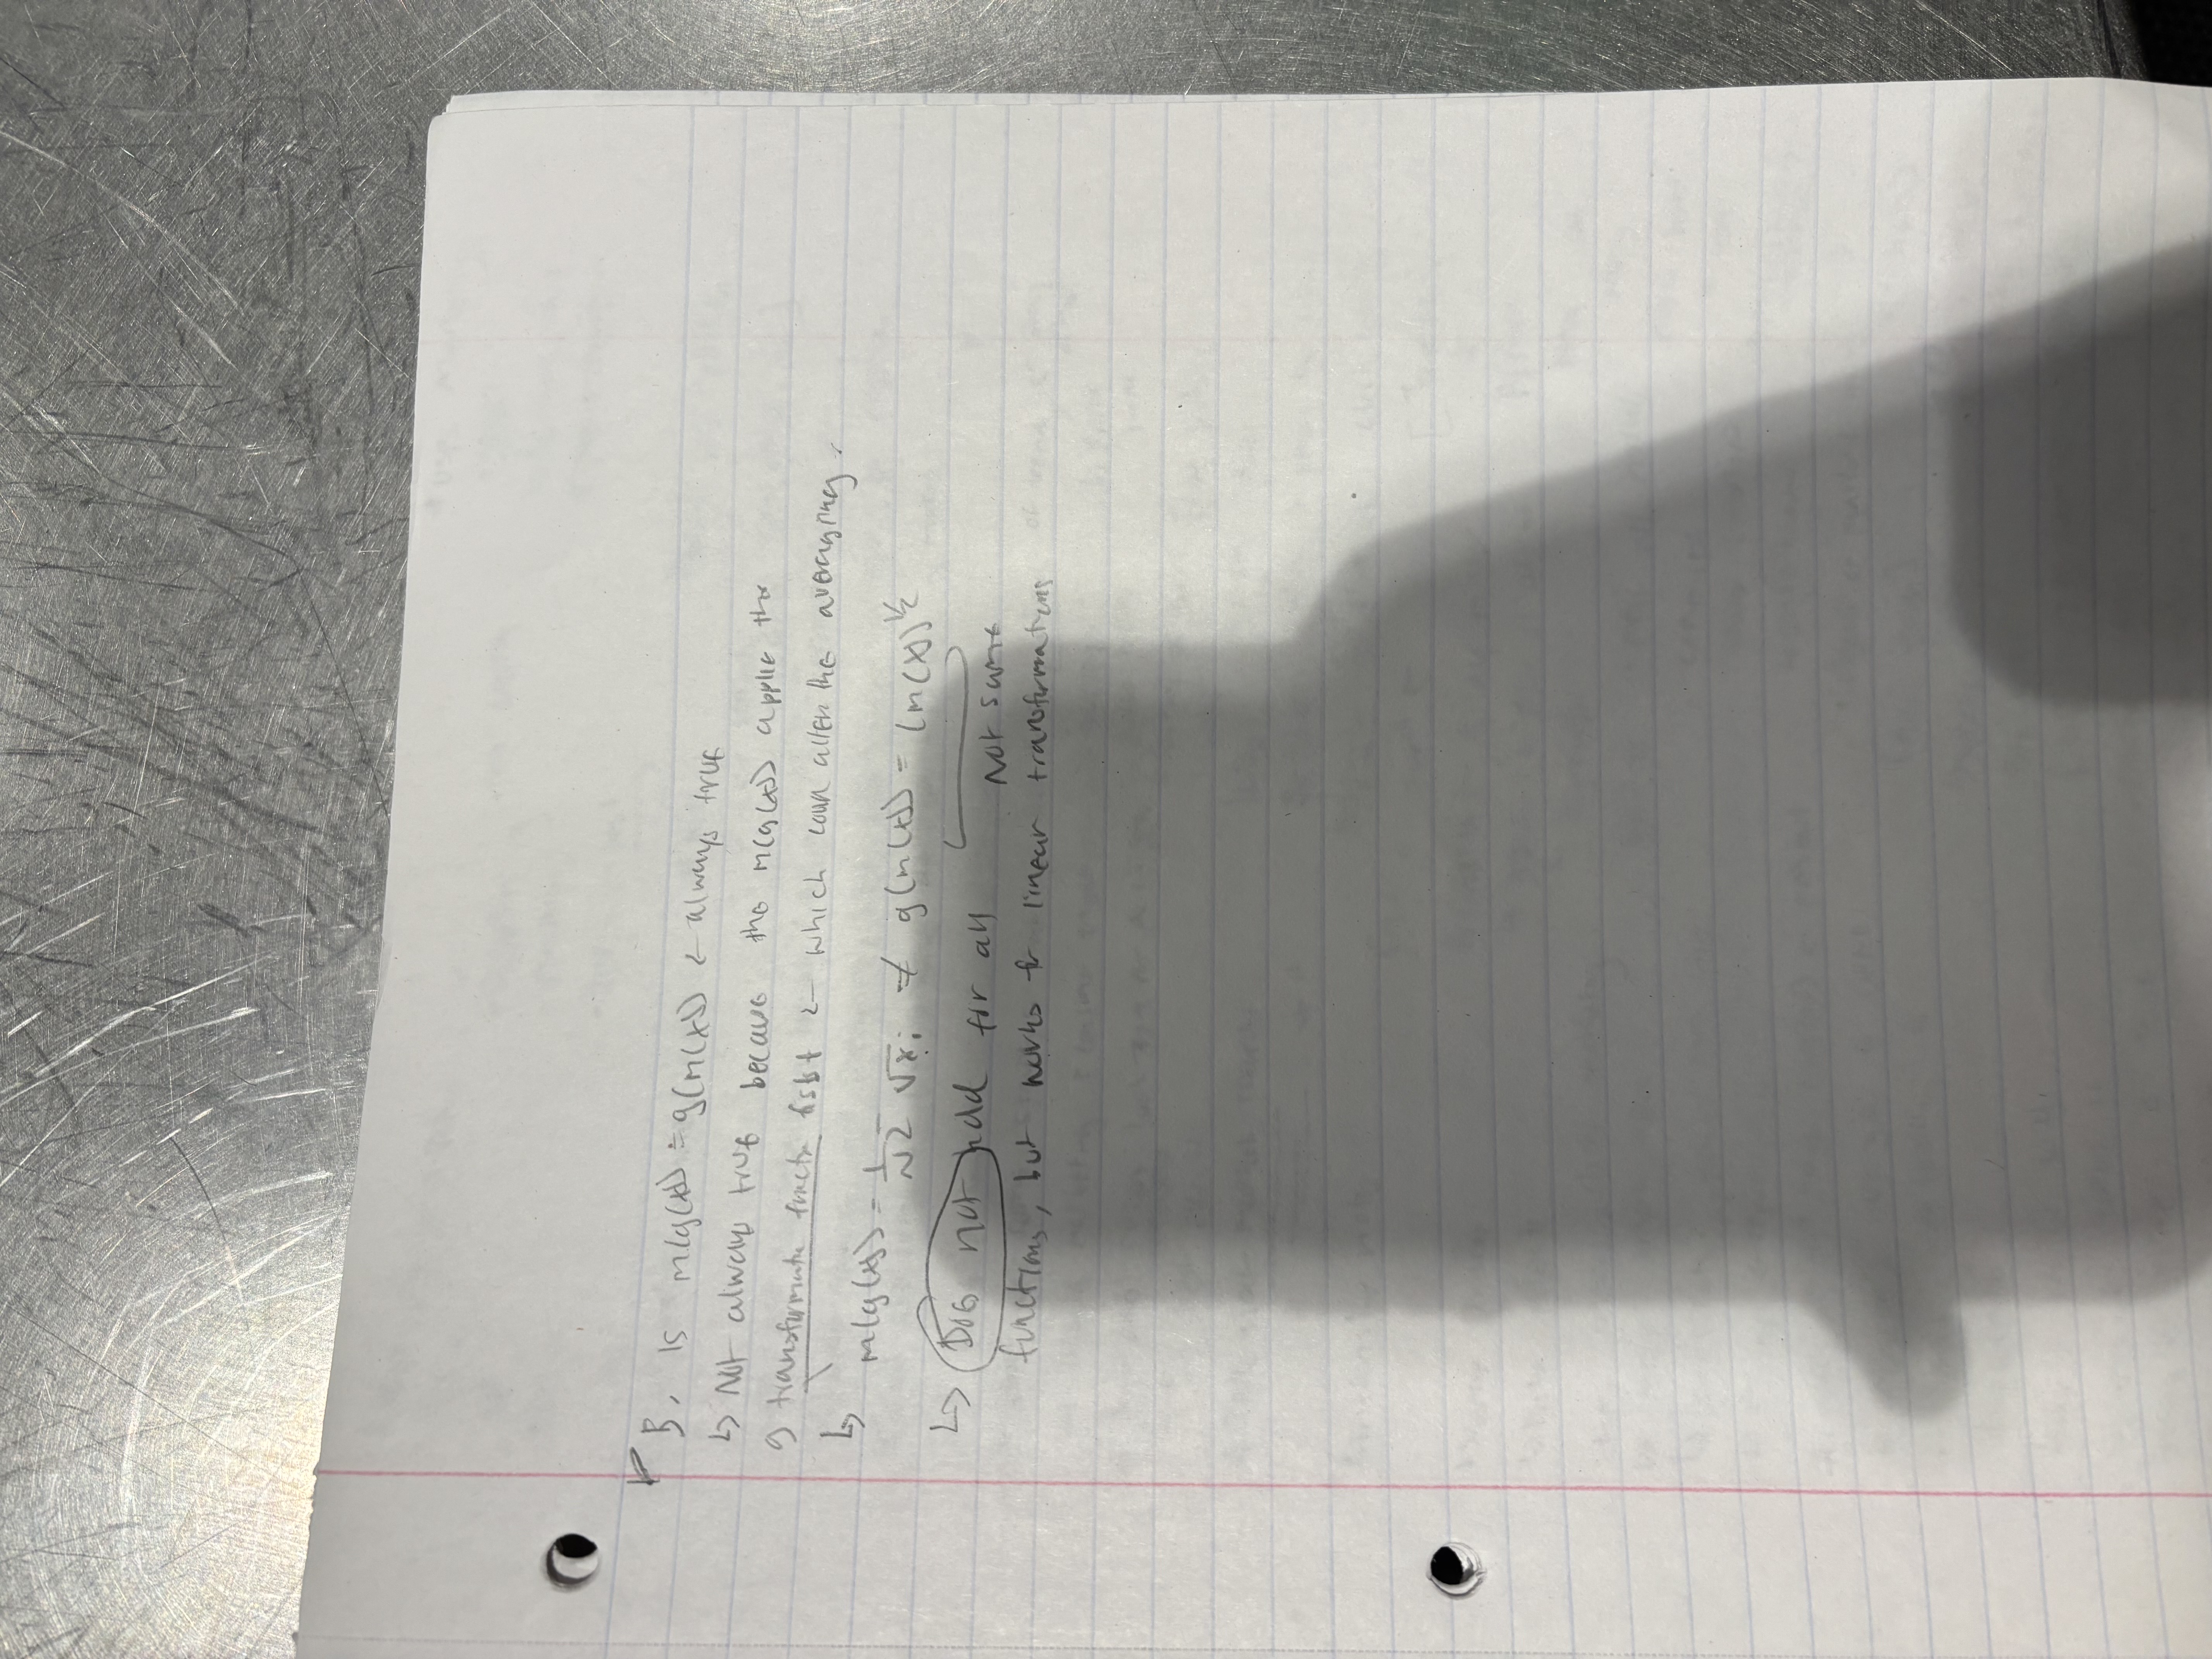 B. Is m(g(x)) = g(m(x)) ← always true
↳ Not always true because the m(g(x)) applie the
g transformate functn first ← which coul alter the averaging.
↳ m(g(x)) = 1/N Σ √xᵢ ≠ g(m(x)) = (m(x))^1/2
↳ Does not hold for all
Not same
functions, but works for linear transformations